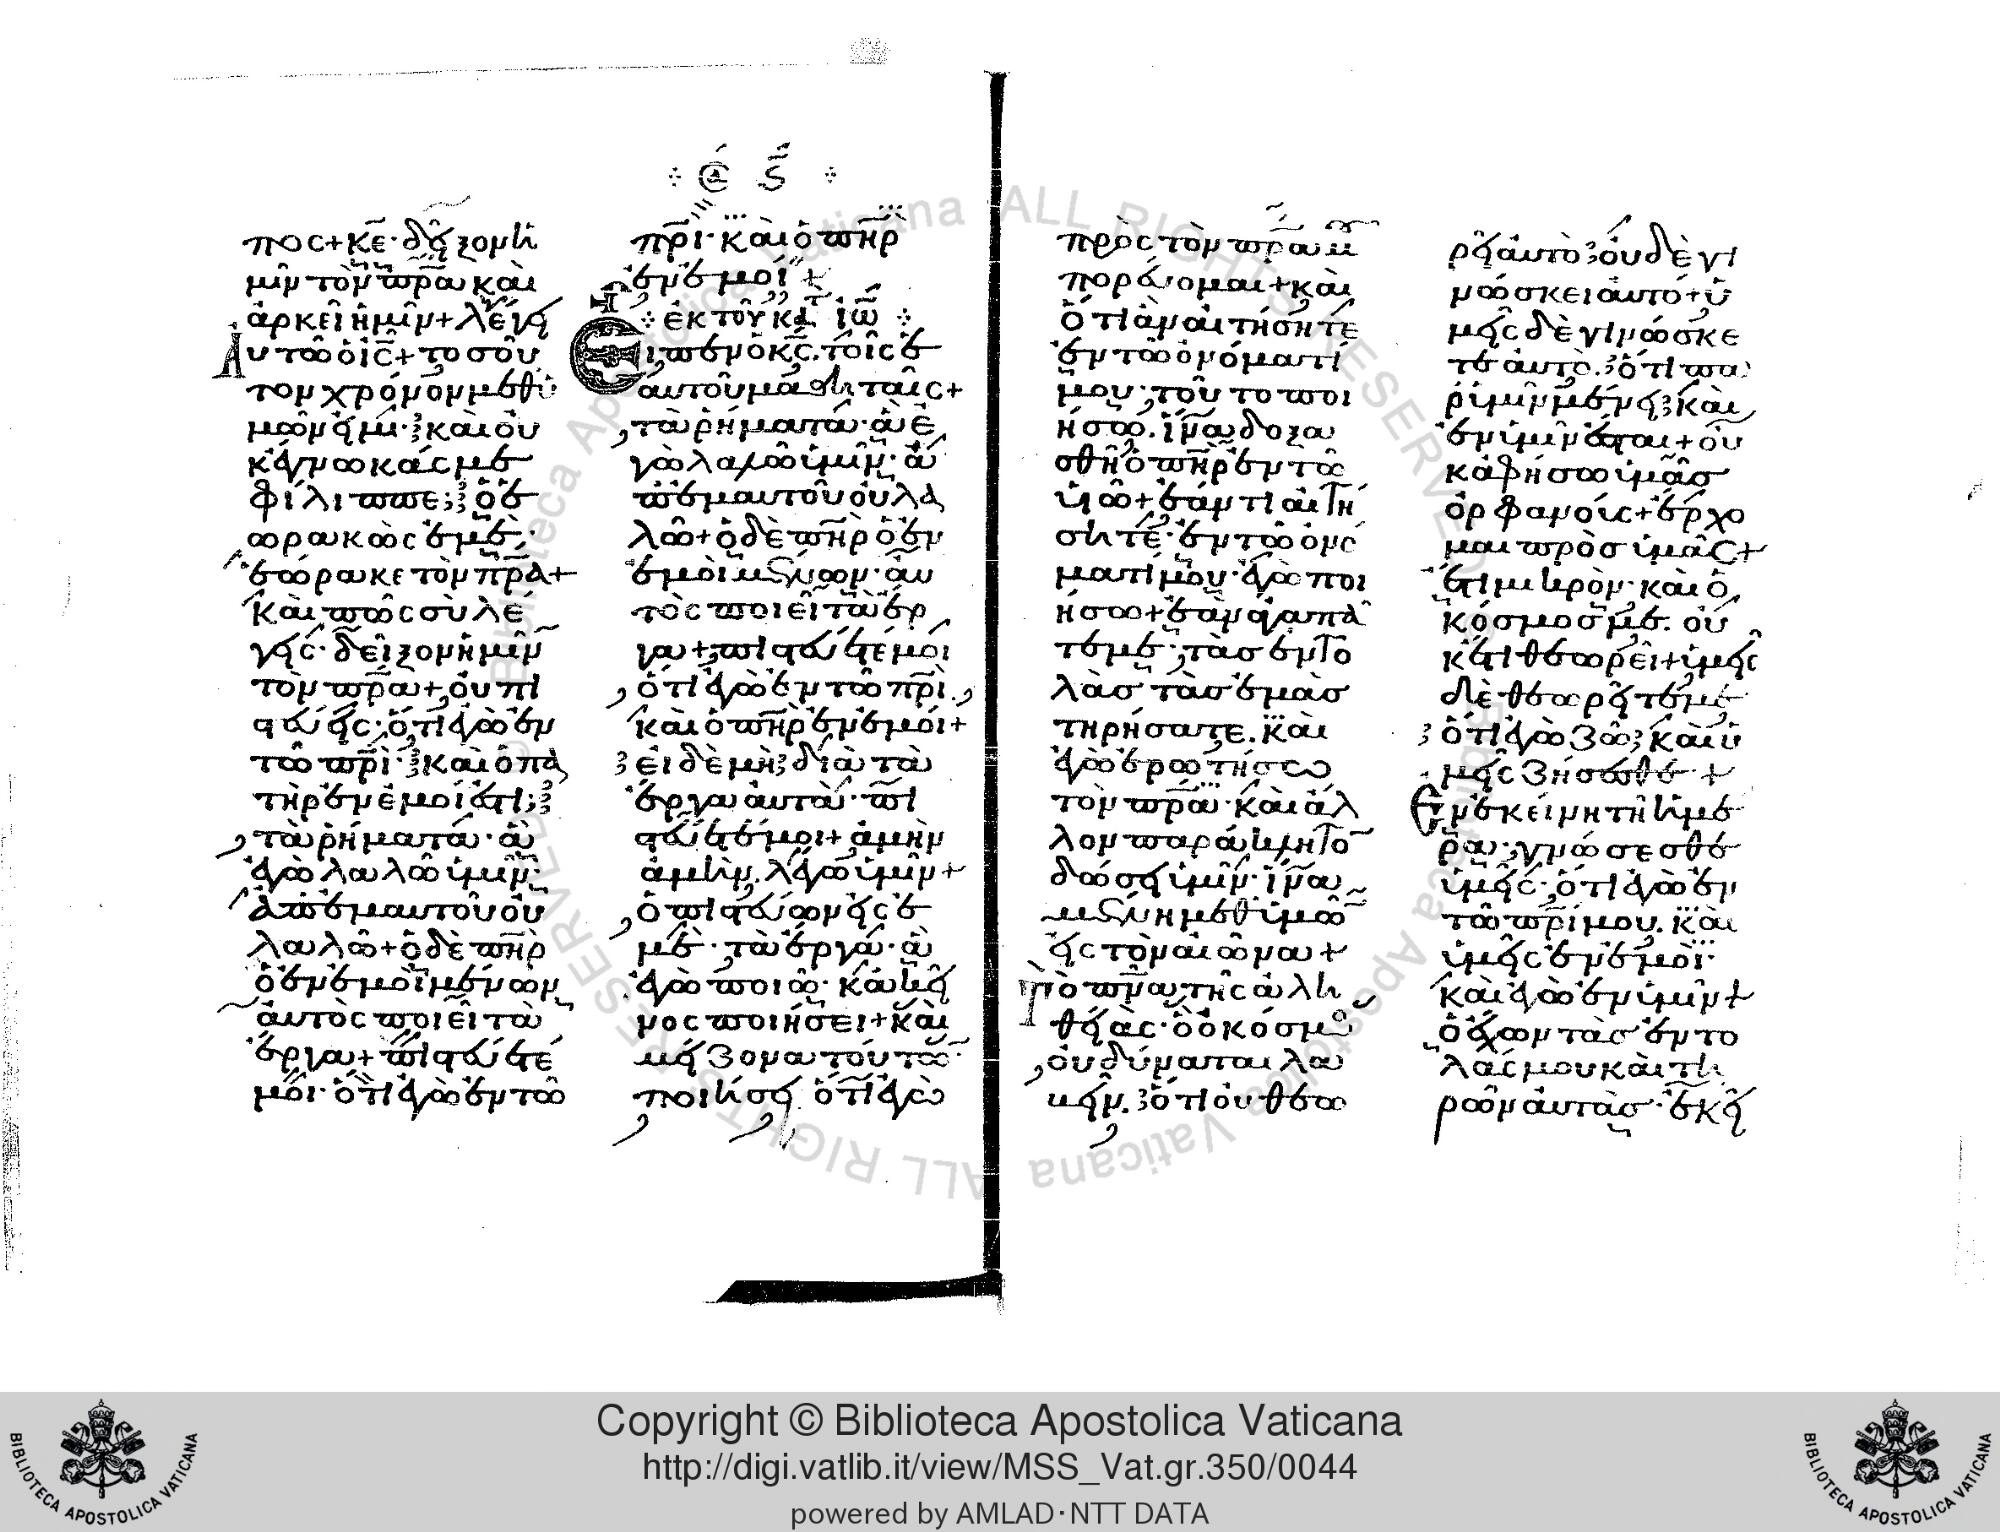 πος+ κε· δεῖξον ἡ
μῖν τὸν πρα καὶ
ἀρκεῖ ἡμῖν+ λέγει
αυτῶ ὁ ις+ τοσοῦ
τον χρόνον μεθ' ὑ
μῶν εἰμι· καὶ οὐ
κ ἔγνωκάς με
φίλιππε; ὁ ἑ
ωρακὼς ἐμὲ·
ἑώρακε τὸν πρα+
καὶ πῶς σὺ λέ
γεις· δεῖξον ἡμῖν
τὸν πρα+ οὐ πι
στεύεις· ὅτι ἐγὼ ἐν
τῶ πρι· καὶ ὁ πα
τὴρ ἐν ἐμοί ἐστι;
τὰ ῥήματα· ἃ
ἐγὼ λαλῶ ὑμῖν·
ἀπ' ἐμαυτοῦ οὐ
λαλῶ+ ὁ δὲ πηρ
ὁ ἐν ἐμοὶ μένων
αὐτὸς ποιεῖ τὰ
ἔργα+ πιστεύετέ
μοι· ὅτι ἐγὼ ἐν τῶ
πρι· καὶ ὁ πηρ
ἐν ἐμοί+
ἐκ τοῦ κατ ιω
Εἶπεν ὁ κς. τοῖς ἑ
αυτοῦ μαθηταῖς+
τὰ ῥήματα· ἃ ἐ
γὼ λαλῶ ὑμῖν· ἀ
π' ἐμαυτοῦ οὐ λα
λῶ+ ὁ δὲ πηρ ὁ ἐν
ἐμοὶ μένων· αὐ
τὸς ποιεῖ τὰ ἔρ
γα+ πιστεύετέ μοι
ὅτι ἐγὼ ἐν τῶ πρι
καὶ ὁ πηρ ἐν ἐμοί+
εἰ δὲ μὴ διὰ τὰ
ἔργα αὐτὰ· πι
στεύετέ μοι+ ἀμὴν
ἀμὴν. λέγω ὑμῖν+
ὁ πιστεύων εἰς ἐ
μὲ· τὰ ἔργα· ἃ
ἐγὼ ποιῶ· κἀκεῖ
νος ποιήσει+ καὶ
μείζονα τούτων·
ποιήσει ὅτι ἐγὼ
πρὸς τὸν πρα μου
πορεύομαι+ καὶ
ὅτι ἂν αἰτήσητε
ἐν τῶ ὀνόματί
μου· τοῦτο ποι
ήσω. ἵνα δοξα
σθῆ ὁ πηρ ἐν τῶ
υἱῶ+ ἐάν τι αἰτή
σητέ· ἐν τῶ ὀνό
ματί μου· ἐγὼ ποι
ήσω+ ἐὰν ἀγαπᾶ
τέ με· τὰς ἐντο
λὰς τὰς ἐμὰς
τηρήσατε. καὶ
ἐγὼ ἐρωτήσω
τὸν πρα· καὶ ἄλ
λον παράκλητο
δώσει ὑμῖν· ἵνα
μένη μεθ' ὑμῶ
εἰς τὸν αἰῶνα+
Τὸ πνα τῆς ἀλη
θείας· ὃ ὁ κόσμο
οὐ δύναται λα
βεῖν. ὅτι οὐ θεω
ρεῖ αὐτο οὐδὲ γι
νώσκει αὐτό+ ὑ
μεῖς δὲ γινώσκε
τε αὐτὸ. ὅτι πα
ρ' ὑμῖν μένει καὶ
ἐν ὑμῖν ἔσται+ οὐ
κ ἀφήσω ὑμᾶς
ὀρφανούς+ ἔρχο
μαι πρὸς ὑμᾶς+
ἔτι μικρὸν· καὶ ὁ
κόσμος με. οὐ
κέτι θεωρεῖ+ ὑμεῖς
δὲ θεωρεῖτέ με
ὅτι ἐγὼ ζῶ καὶ ὑ
μεῖς ζήσεσθε+
Ἐν ἐκείνη τῆ ἡμέ
ρα· γνώσεσθε
ὑμεῖς· ὅτι ἐγὼ ἐν
τῶ πρι μου. καὶ
ὑμεῖς ἐν ἐμοὶ·
καὶ ἐγὼ ἐν ὑμῖν+
ὁ ἔχων τὰς ἐντο
λάς μου καὶ τη
ρῶν αὐτὰς· ἐκεῖ
Copyright © Biblioteca Apostolica Vaticana
http://digi.vatlib.it/view/MSS_Vat.gr.350/0044
powered by AMLAD·NTT DATA
BIBLIOTECA APOSTOLICA VATICANA
BIBLIOTECA APOSTOLICA VATICANA